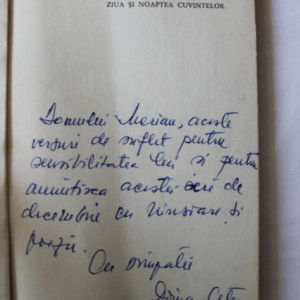 ZIUA ȘI NOAPTEA CUVINTELOR
Domnului Marian, aceste
versuri de suflet pentru
sensibilitatea lui și pentru
amintirea acestei seri de
decembrie cu ninsoare și
poezie.
Cu simpatie